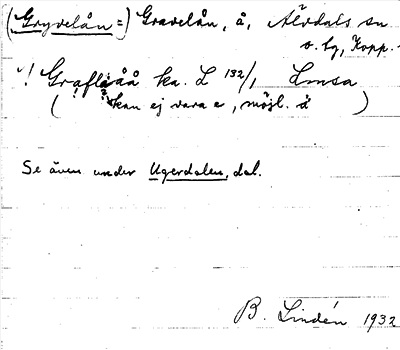 (Gryvelån =) Gravelån, å, Älvdals sn
o. by, Kopp.
! Graflåå ka. L 132/1 Lmsa
(? kan ej vara e, möjl. ä )
Se även under Ugerdalen, dal.
B. Lindén 1932